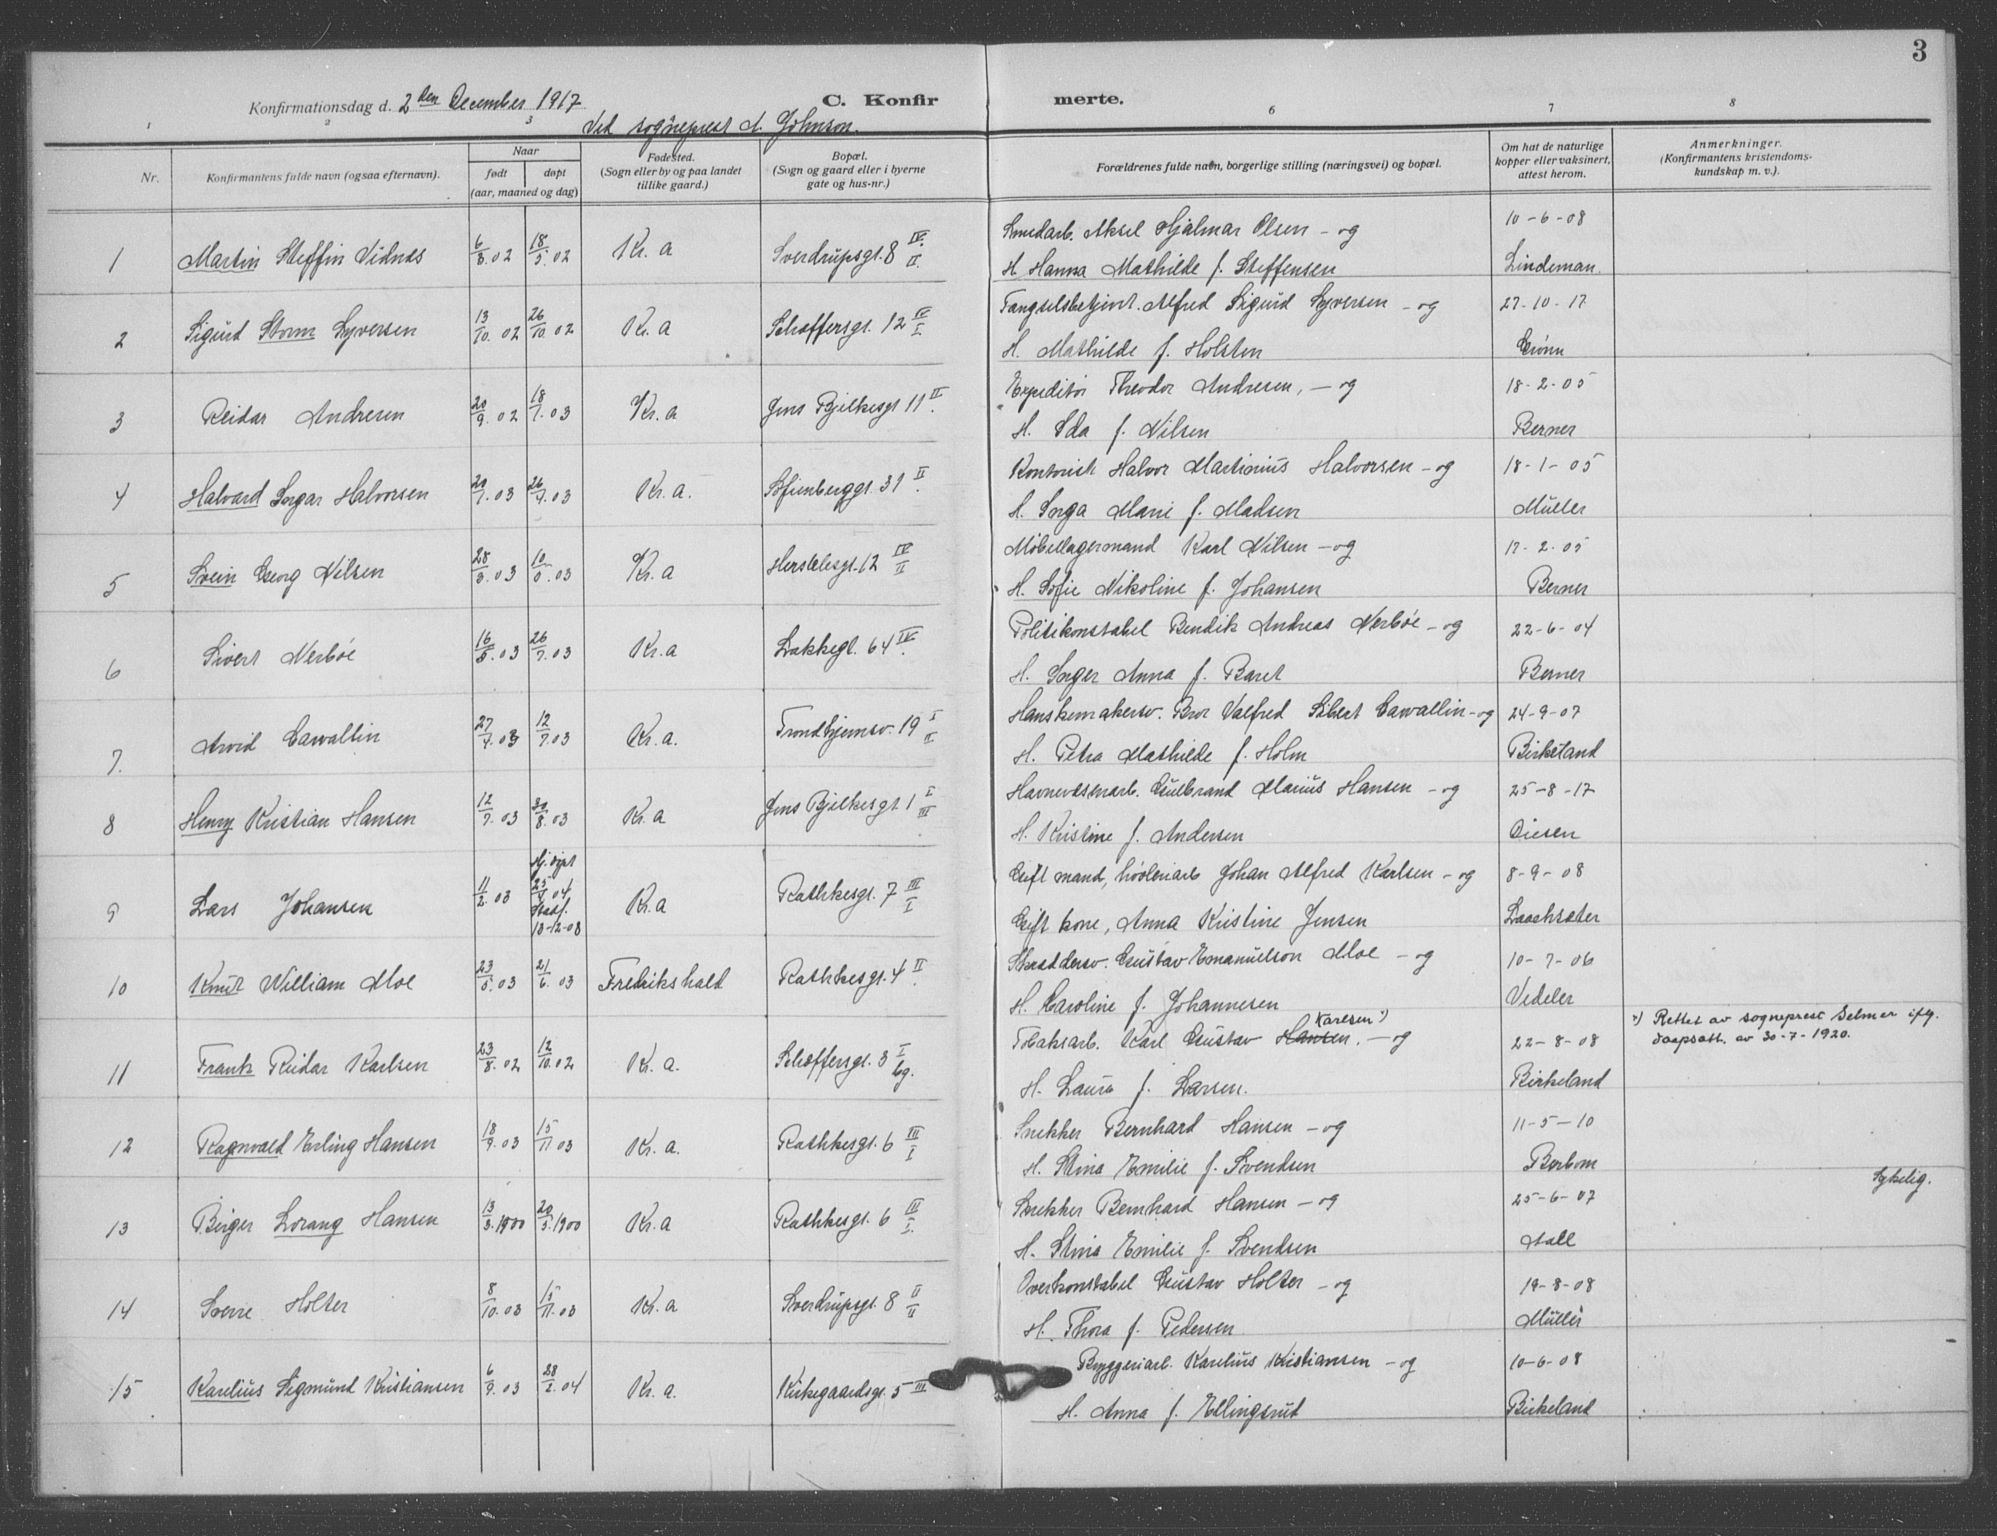 3
Konfirmationsdag d. 2den December 1917 C. Konfirmerte.
Ved sogneprest A. Johnson.
1 2 3 6 7 8
Nr. Konfirmantens fulde navn (ogsaa efternavn). Naar født døpt (aar, maaned og dag) Fødested. (Sogn eller by og paa landet tillike gaard.) Bopæl. (Sogn og gaard eller i byerne gate og hus-nr.) Forældrenes fulde navn, borgerlige stilling (næringsvei) og bopæl. Om hat de naturlige kopper eller vaksinert, attest herom. Anmerkninger. (Konfirmantens kristendomskundskap m. v.).
Smedarb. Aksel Hjalmar Olsen - og 10-6-08
1 Martin Steffin Vidnes 6/3.02 18/5.02 Kr.a Sverdrupsgt. 8 IV/II H. Hanna Mathilde f. Steffensen Lindeman.
Fængselsbetjent. Alfred Sigurd Syversen - og 27-10-17
2 Sigurd Storm Syversen 13/10.02 26/10.02 Kr.a Schøffersgt. 12 H. Mathilde f. Holsten Grønn
Expeditør Theodor Andresen, - og 18-2-05
3 Reidar Andresen 20/9.02 18/1.03 Kr.a Jens Bjelkesgt 11 II. H. Ida f. Nilsen Berner
Kontorist Halvor Martinius Halvorsen - og 18-1-05
4 Halvard Ingar Halvorsen 20/1.03 26/7.03 Kr.a. Sofienberggt. 31 II. H. Inga Marie f. Madsen Müller
Møbellagermand Karl Nilsen - og 17-2-05
5 Svein Georg Nilsen 28/3.03 .03 Kr.a Herslebsgt. 12 IV/II H. Sofie Nikoline f. Johansen Berner
Politikonstabel Bendik Andreas Nerbøe - og 22-6-04
6 Sivert Nerbøe 16/5.03 26/7.03 Kr.a Lakkegt. 64 IV. H. Inger Anna f. Baret Berner
Hanskemakersv. Bror Valfred Sibert Cawallin - og 24-9-07
7. Arvid Cawallin 27/4.03 12/7.03 Kr.a. Trondhjemsv. 19 I/II H. Petra Mathilde f. Holm Birkeland
Havnevæsenarb. Gulbrand Marius Hansen - og 25-8-17
8 Henry Kristian Hansen 12/7.03 30/8.03 Kr.a Jens Bjelkesgt 1 I/III H. Kristine f. Andersen Diesen
Gift mand, høvleriarb Johan Alfred Karlsen - og 8-9-08
9 Lars Johansen 11/2.03 Hj.døpt 04 Stadf. 13-12-08 Kr.a Rathkesgt. 7 III/I Gift kone, Anna Kristine Jensen
Skreddersv. Gustav Emanuelson Moe - og 10-7-06
10 Knut William Moe 23/5.03 21/6.03 Fredrikshald Rathkesgt. 4 II. H. Caroline f. Johannesen Vedeler
Tobaksarb. Karl Gustav Hansen. Karlsen *) - og 22-8-08 *) Rettet av sogneprest Selmer iflg. daapsatt. av 30-7-1920.
11 Frank Reidar Karlsen 23/8.02 12/10.02 Kr.a. Schøffersgt. 3 I bg. H. Laura f. Larsen. Birkeland
Snekker Bernhard Hansen - og 11-5-10
12 Ragnvald Erling Hansen 18/9.03 15/11.03 Kr.a. Rathkesgt. 6 III/I H. Stina Emilie f. Svendsen Borbom
Snekker Bernhard Hansen - og 25-6-07 Sykelig.
13 Birger Lorang Hansen 13/3.1900 20/5.1900 Kr.a Rathkesgt. 6 III/I. H. Stina Emilie f. Svendsen Aall
Overkonstabel Gustav Holter - og 19-8-08
14 Sverre Holter 8/10.03 15/11.03 Kr.a Sverdrupsgt. 8 II/II H. Thora f. Pedersen Müller
Bryggeriarb. Karelius Kristiansen - og 10-6-08
15 Karelius Sigmund Kristiansen 6/9.03 28/2.04 Kr.a. Kirkegaardsgt. 5 III H. Anna f. Ellingsrud Birkeland